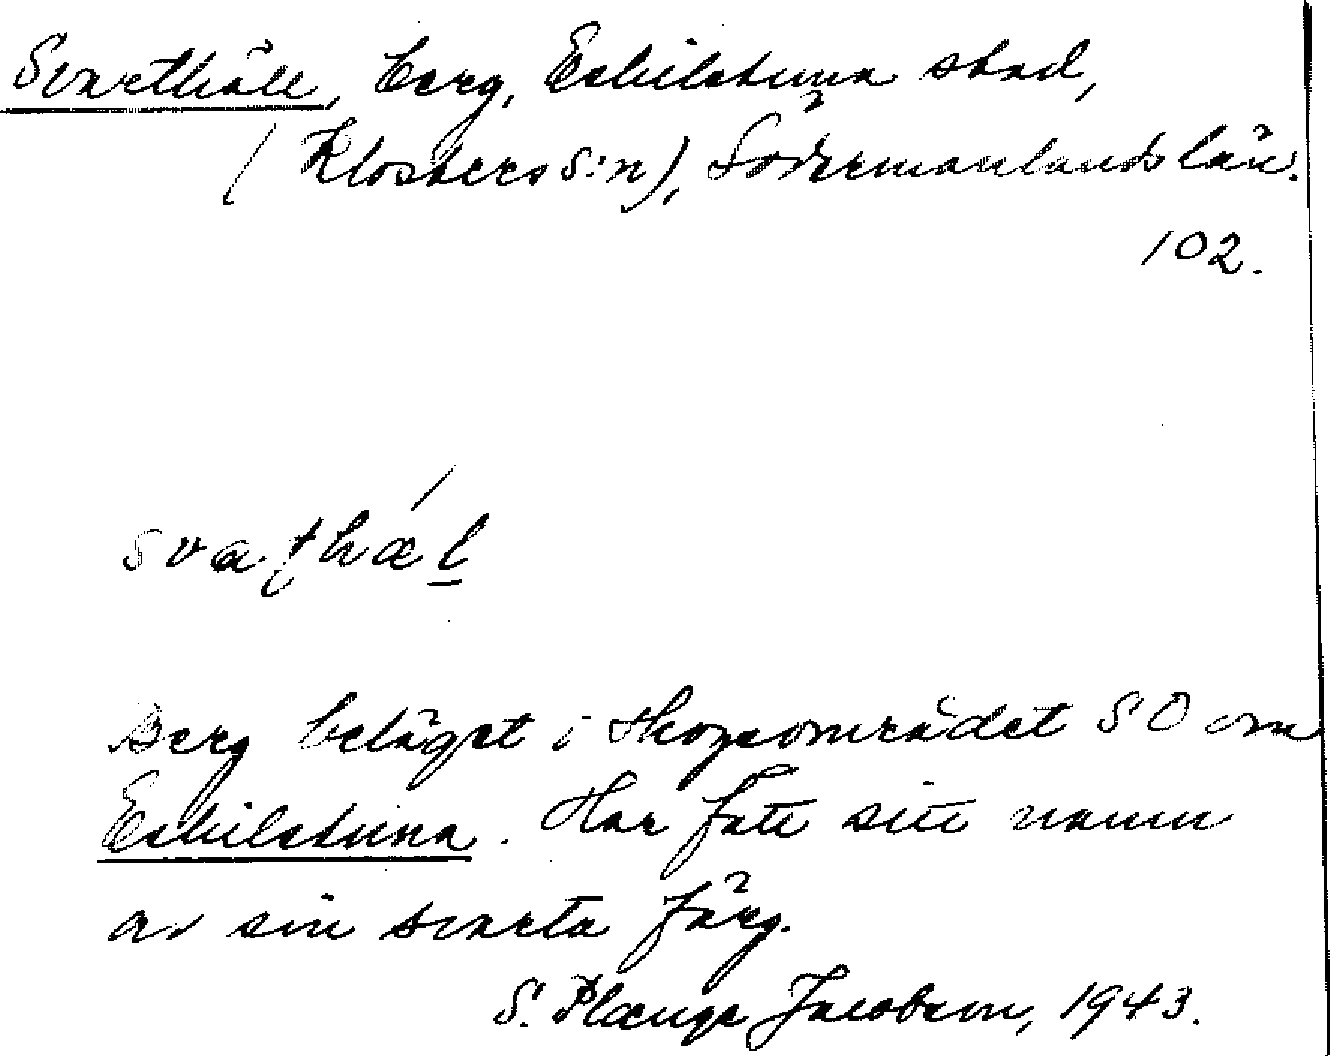 Svarthäll, berg, Eskilstuna stad,
(Klosters s:n), Södermanlands län.
102.
svaṭhæl
Berg beläget i skogsområdet SO om
Eskilstuna. Har fått sitt namn
av sin svarta färg.
S. Plænge Jacobson, 1943.